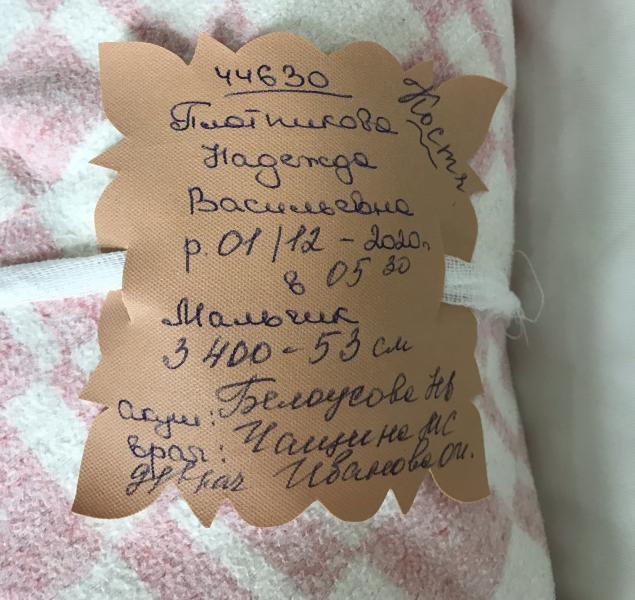 44630
Костя
Плотникова
Надежда
Васильевна
р. 01/12 - 2020г.
в 05 30
Мальчик
3 400 - 53 см
акуш: Белоусова НВ
врач: Чащина МС
Иванова ОИ.